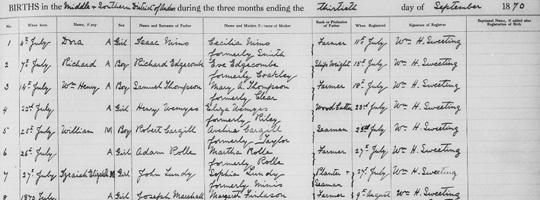 BIRTHS in the Middle & Southern District of Andros during the three months ending the thirtieth day of September 1870
When born Name, if any Sex Name and Surname of Father Name and Maiden Surname of Mother Rank or Profession of Father When Registered Signature of Registrar Baptismal Name, if added after Registration of Birth
1 4th July Dora A Girl Isaac Mims Cecilia Mims formerly Smith Farmer 11th July Wm H. Sweeting
2 7th July Richard A Boy Richard Edgecombe Eve Edgecombe formerly Coakley Ship Wright 15th July Wm H. Sweeting
3 14th July Wm Henry A Boy Samuel Thompson Mary A. Thompson formerly Farmer 18th July Wm H. Sweeting
4 22nd July A Girl Henry Wemyss Eliza Wemyss formerly Riley Wood Cutter 28th July Wm H. Sweeting
5 25th July William M Boy Robert Cargill Cargill formerly Taylor Seaman 28th July Wm H. Sweeting
6 26th July A Girl Adam Rolle Martha Rolle formerly Rolle Farmer 27th July Wm H. Sweeting
7 27th July Elizabeth Girl John Lundy Sophia Lundy formerly Minis Planter & Seaman 29th July Wm H. Sweeting
8 1870 July A Girl Joseph Marshall Margaret Finlason Farmer 9th August Wm H. Sweeting